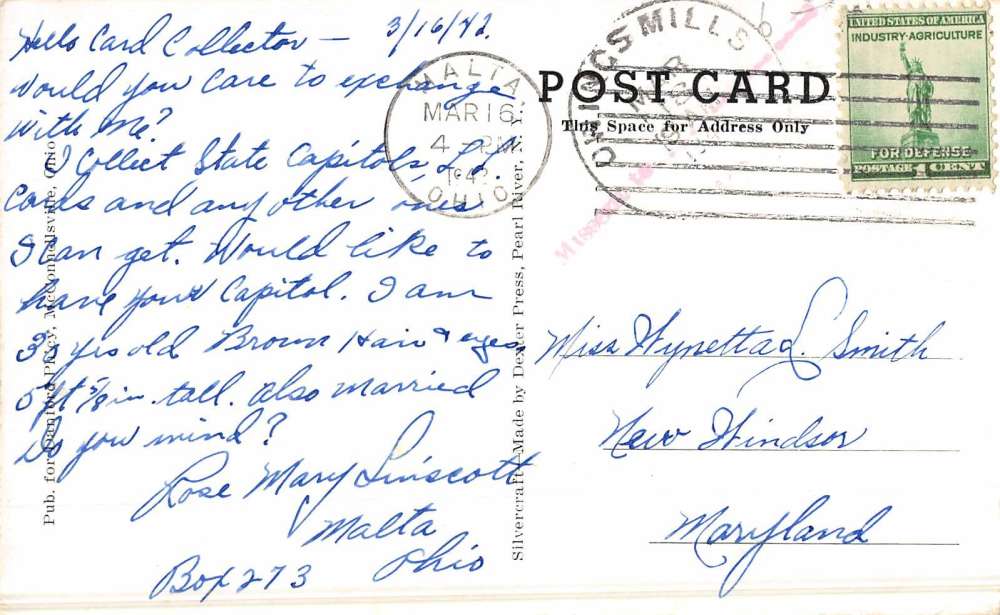 Hello Card Collector — 3/16/42.
Would you care to exchange
with me?
I Collect State Capitols, L.L.
Cards and any other ones
I can get. Would like to
have your Capitol. I am
yrs old Brown Hair & eyes,
5 ft in. tall. also married
Do you mind?
Rose Mary Linscott
Malta
Ohio
Box 273
Pub. for Danford Ph'cy, McConnelsville, Ohio
Silvercraft—Made by Dexter Press, Pearl River, N. Y.
MALTA
MAR 16
4 PM
1942
OHIO
POST CARD
This Space for Address Only
OWINGS MILLS
Missent to
UNITED STATES OF AMERICA
INDUSTRY·AGRICULTURE
FOR DEFENSE
POSTAGE 1 CENT
Miss Wynetta L. Smith
New Windsor
Maryland